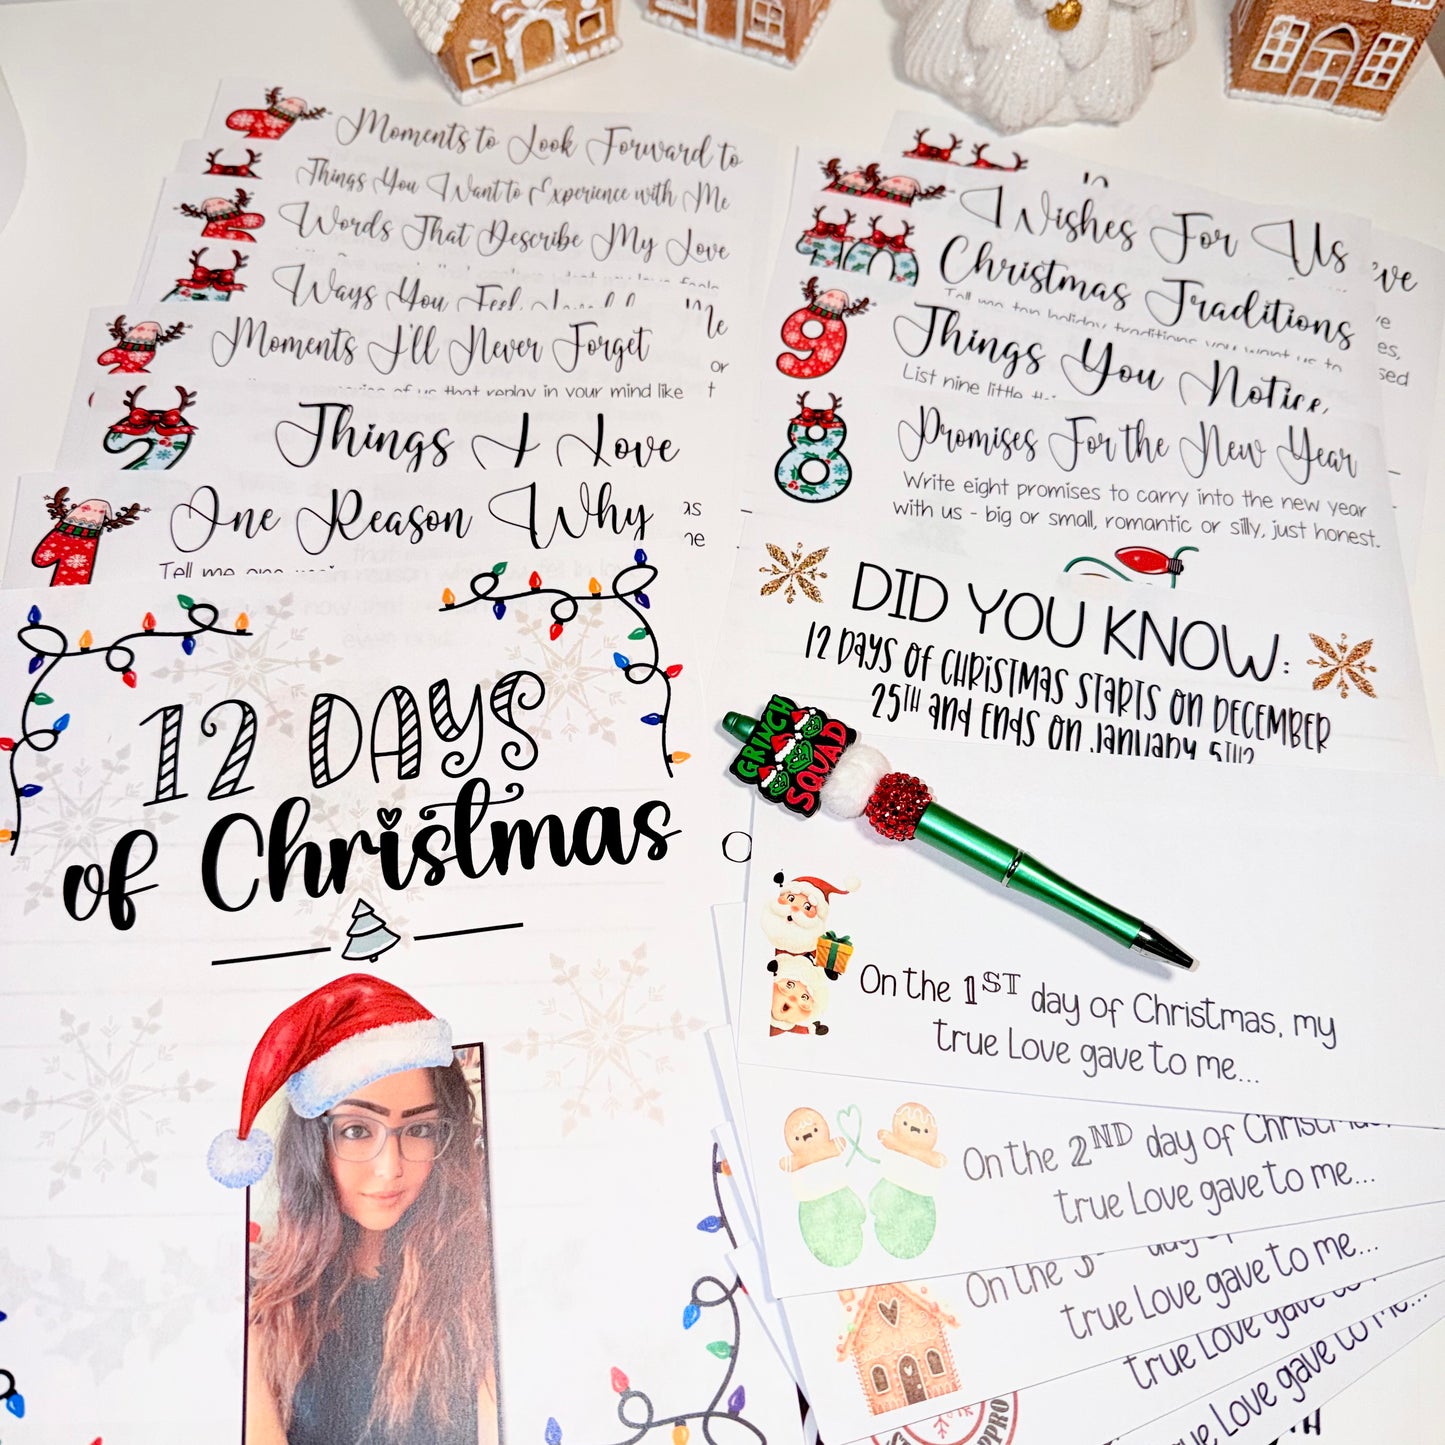 Moments to Look Forward to
Things You Want to Experience with Me
2
Words That Describe My Love
Ways You Feel
Me
or
Moments I'll Never Forget
of us that replay in your mind like
Things I Love
1
One Reason Why
Tell me one
12 DAYS
of Christmas
Wishes For Us
10
Christmas Traditions
Tell me ten holiday traditions you want us to
9
Things You Notice,
List nine little
8
Promises For the New Year
Write eight promises to carry into the new year
with us - big or small, romantic or silly, just honest.
DID YOU KNOW:
12 DAYS OF CHRISTMAS STARTS ON DECEMBER
25TH and ENDS ON January 5TH?
GRINCH
SQUAD
On the 1ST day of Christmas, my
true Love gave to me...
On the 2ND day of Christmas
true Love gave to me...
On the
true Love gave to me...
true Love gave to
Love gave to me...